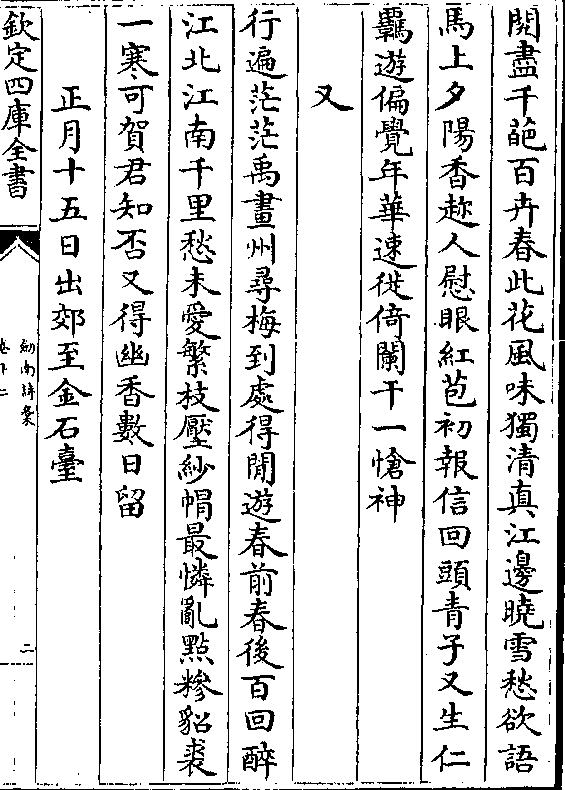 閱盡千葩百卉春此花風味獨清真江邊曉雪愁欲語
馬上夕陽香趂人慰眼紅苞初報信回頭青子又生仁
羈遊偏覺年華速徙倚闌干一愴神
又
行遍茫茫禹畫州尋梅到處得閒遊春前春後百回醉
江北江南千里愁未愛繁枝壓紗帽最憐亂點糝貂裘
一寒可賀君知否又得幽香數日留
正月十五日出郊至金石臺
欽定四庫全書
劍南詩槀
二